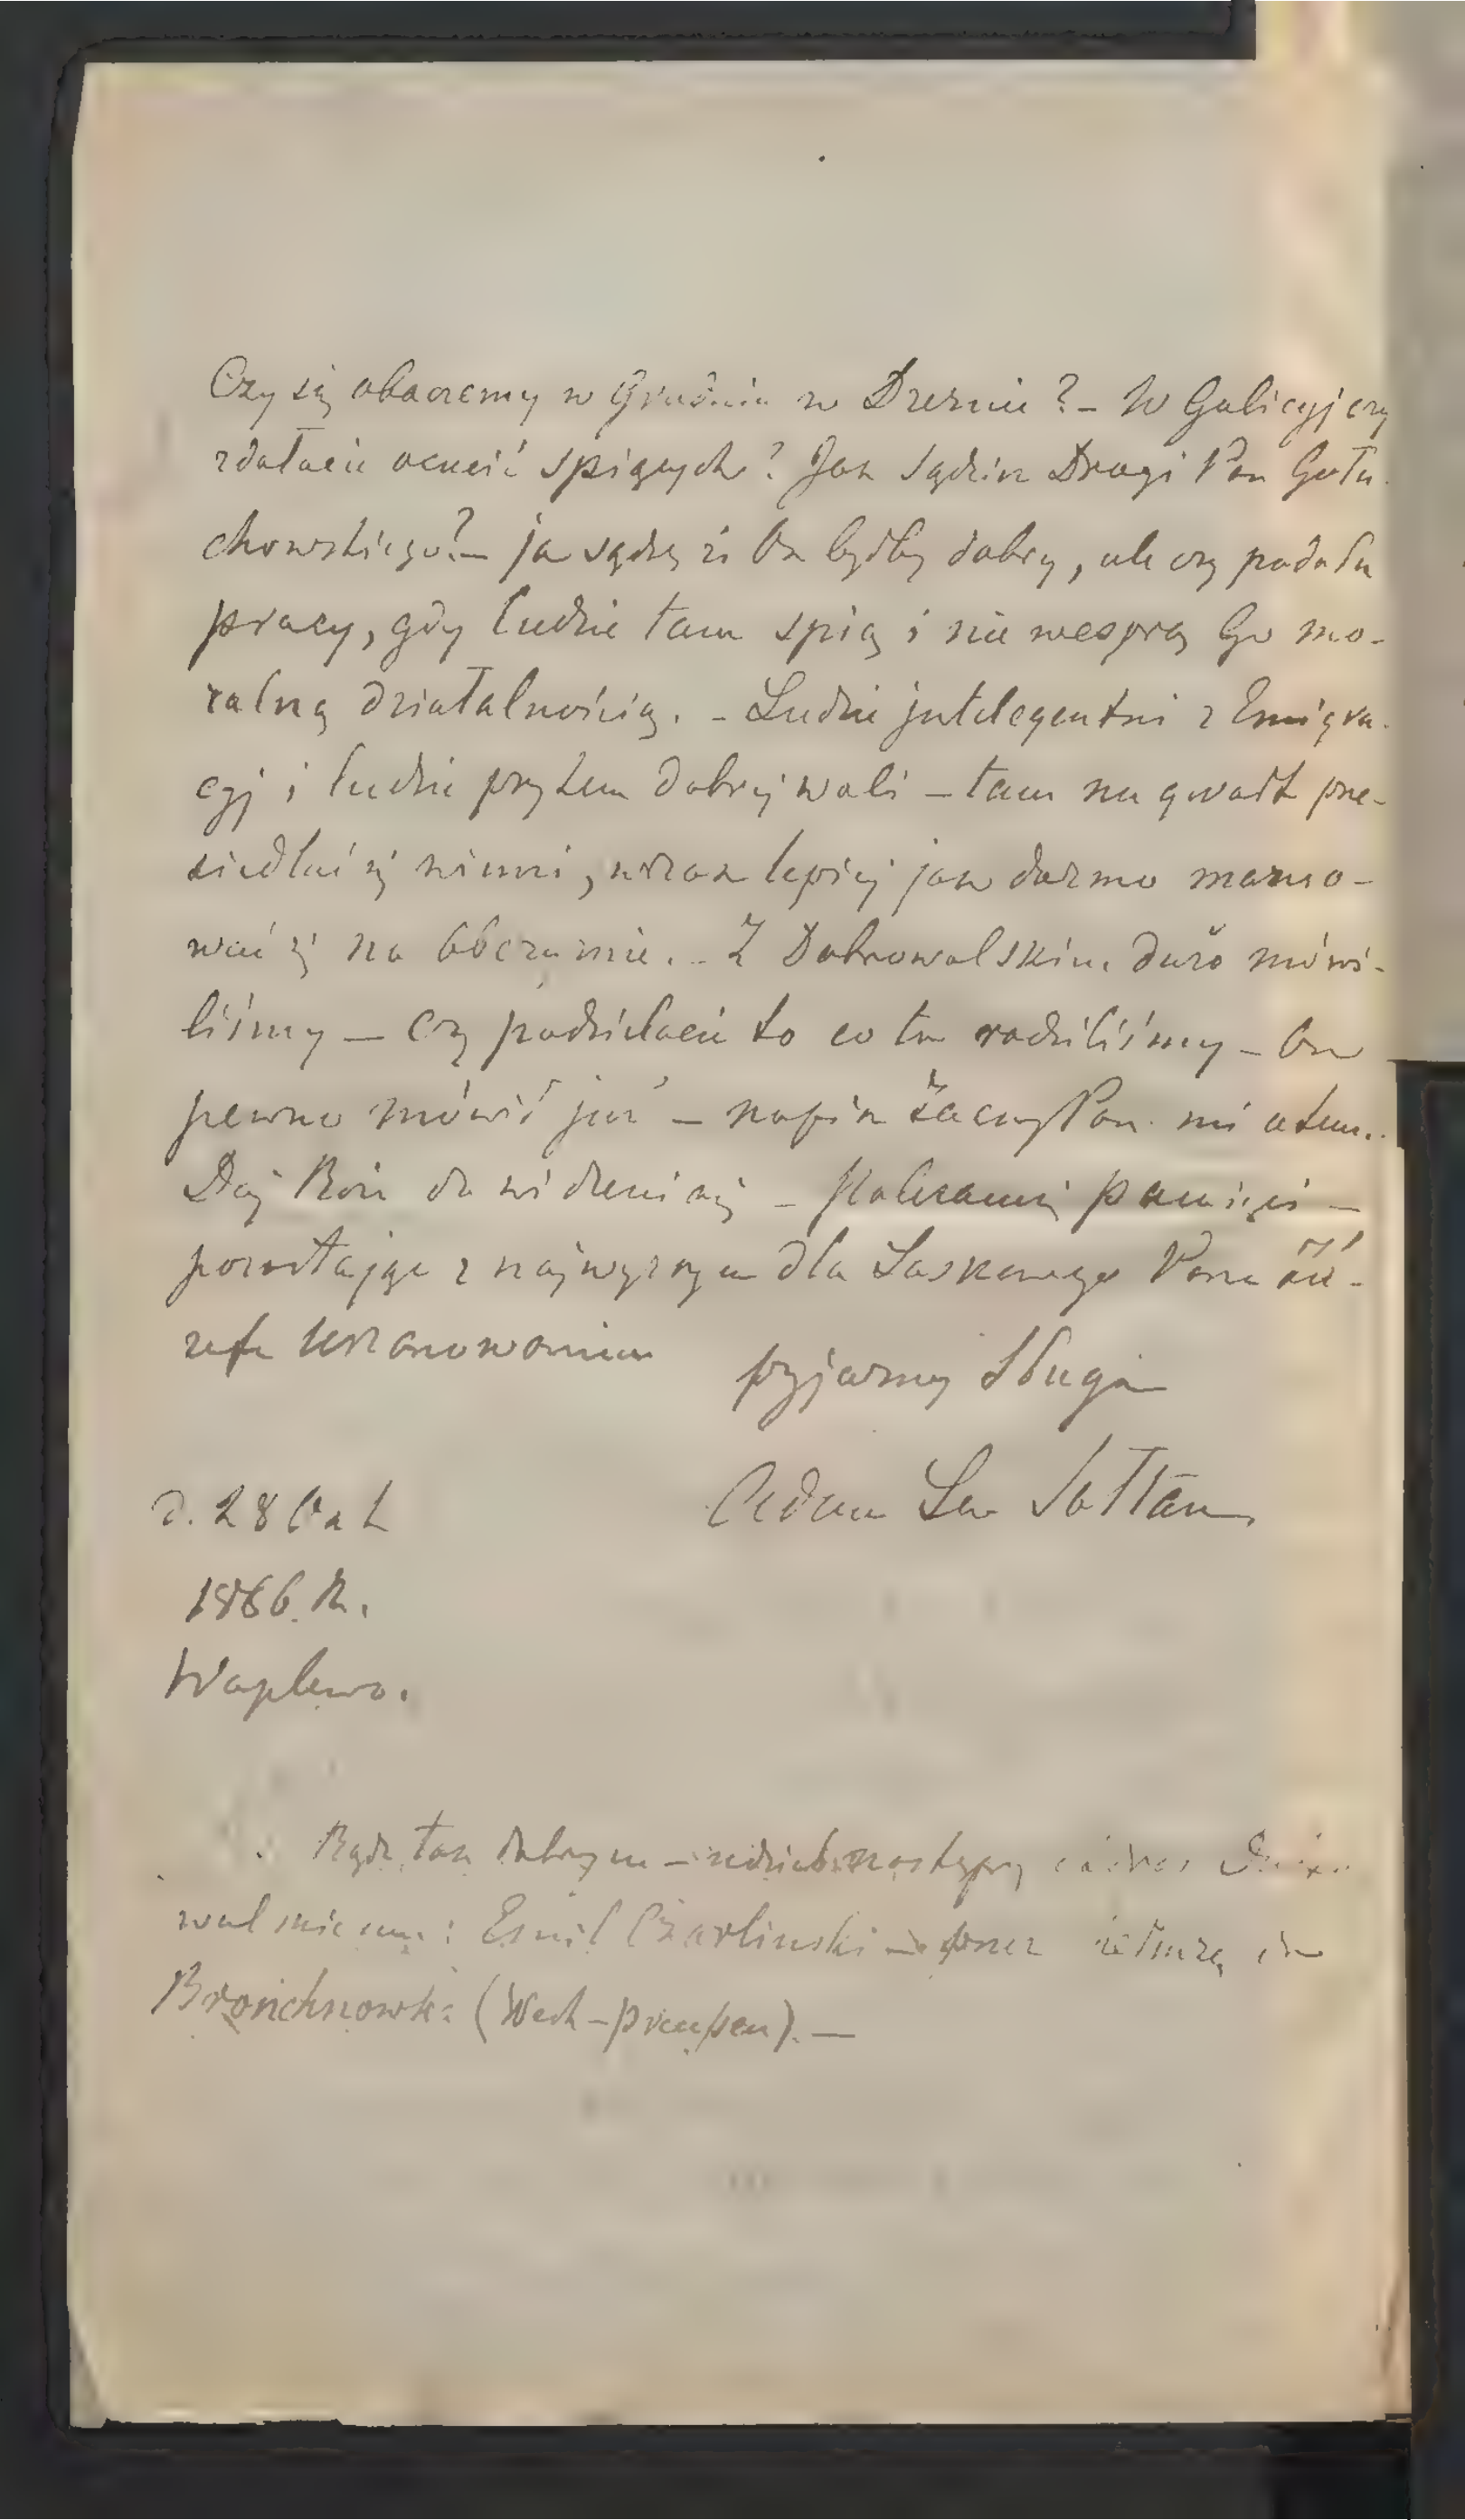 Czy się obaczemy w Grudniu w Dreznie? – W Galicyj czy
zdołacie ocucić spiących? Jak sądzisz Drogi Pan Gołu-
chowskiego? – ja sądzę iż On byłby dobry, ale czy podoła
pracy, gdy ludzie tam spią i nie wesprą Go mo-
ralną działalnością. – Ludzie jntelegentni z Emigra-
cyj i ludzie przytem dobrej woli – tam na gwałt prze-
siedlać się winni, wszak lepiej jak darmo marno-
wać się na Obczyznie. – Z Dobrowolskim dużo mówi-
liśmy – czy podzielacie to co tu radziliśmy – On
pewno mówił już – napisz Zacny Pan mi o tem.
Daj Boże do widzenia się – Polecam się pamięci –
pozostając z najwyższym dla Łaskawego Pana Jó-
zefa uszanowaniem
przyjazny Sługa
Adam Lew Sołtan
d. 28 Okt
1866. R.
Waplewo.
Bądz tak dobrym – udziel następny
: Emil Czarlinski – przez
Brąchnowki (West-preußen). –